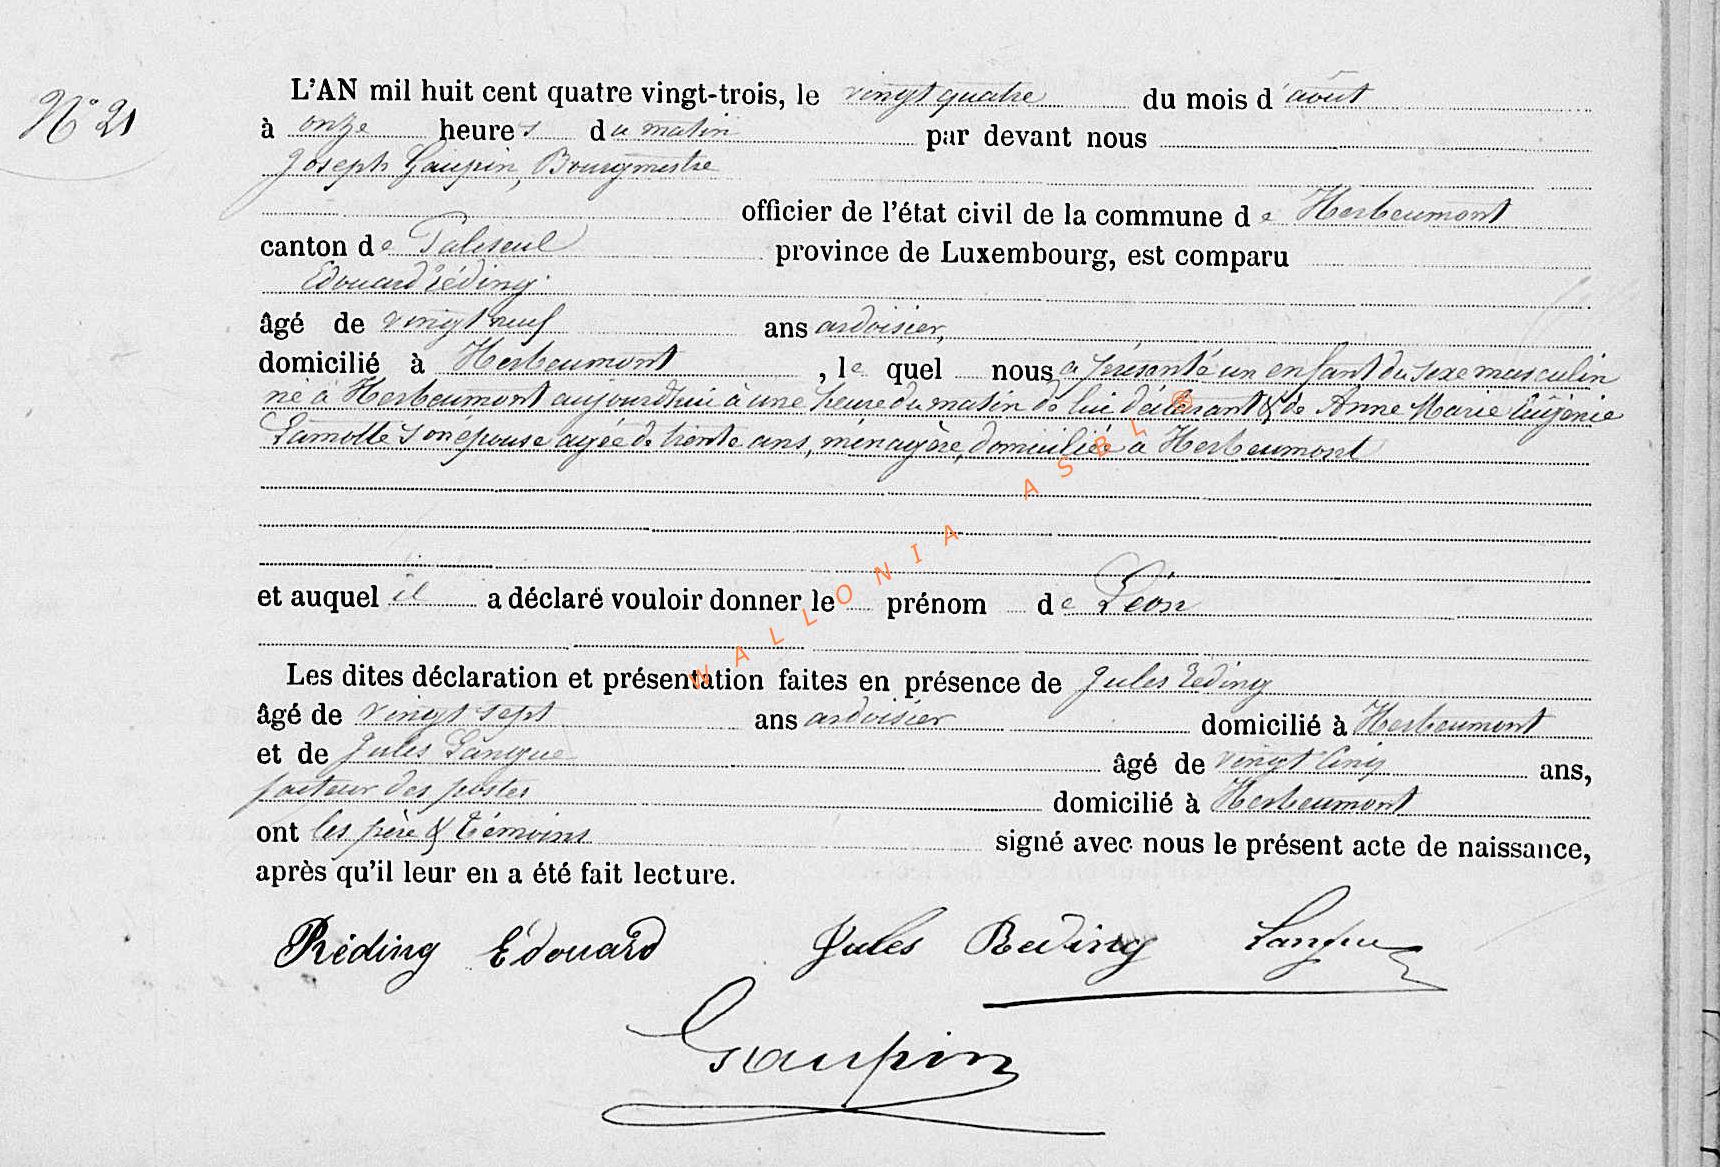 N° 21
L'AN mil huit cent quatre vingt-trois, le vingt quatre du mois d'août
à onze heures du matin par devant nous
Joseph Gaupin, Bourgmestre
officier de l'état civil de la commune de Herbeumont
canton de Paliseul province de Luxembourg, est comparu
Edouard Réding
âgé de vingt neuf ans ardoisier,
domicilié à Herbeumont, le quel nous a présenté un enfant du sexe masculin
né à Herbeumont aujourd'hui à une heure du matin de lui déclarant & de Anne Marie Eugénie
Lamotte son épouse agée de trente ans, ménagère, domiciliée à Herbeumont
et auquel il a déclaré vouloir donner le prénom de Léon
Les dites déclaration et présentation faites en présence de Jules Réding
âgé de vingt sept ans ardoisier domicilié à Herbeumont
et de Jules Langue âgé de vingt cinq ans,
facteur des postes domicilié à Herbeumont
ont les père & témoins signé avec nous le présent acte de naissance,
après qu'il leur en a été fait lecture.
Réding Edouard Jules Reding Langue
Gaupin
WALLONIA ASBL ®